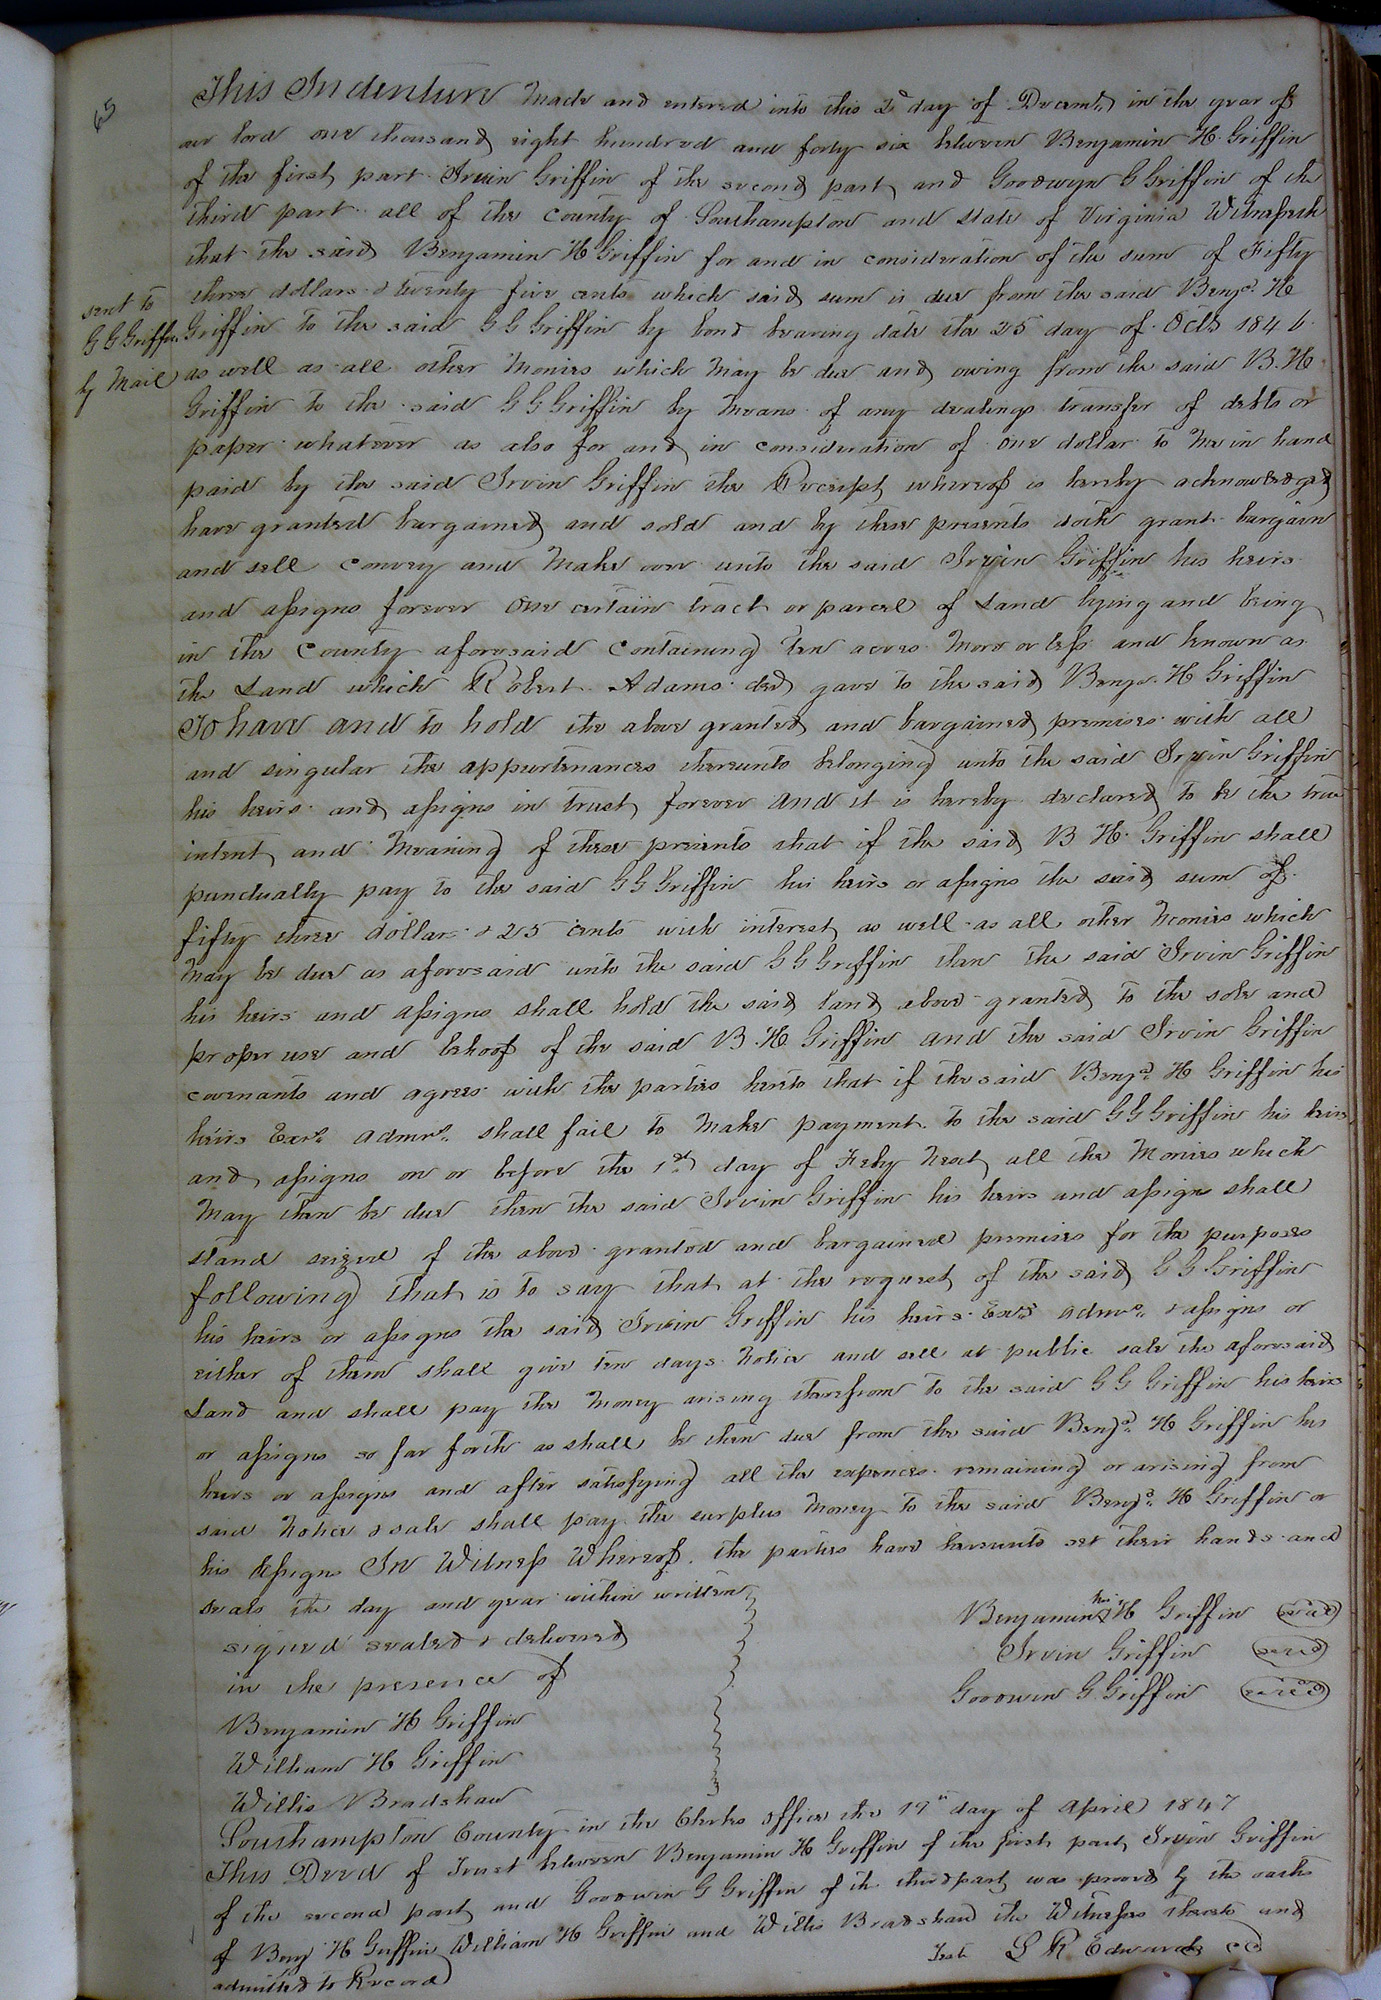 65
This Indenture Made and entered into this 2d day of Decemb. in the year of
our lord one thousand eight hundred and forty six between Benjamin H. Griffin
of the first part Irvin Griffin of the second part and Goodwyn G Griffin of the
third part all of the county of Southampton and state of Virginia Witnesseth
that the said Benjamin H Griffin for and in consideration of the sum of Fifty
three dollars & twenty five cents which said sum is due from the said Benja. H
Griffin to the said G G Griffin by bond bearing date the 25 day of Octb 1846.
sent to
G G Griffin
by Mail
as well as all other Monies which May be due and owing from the said B. H
Griffin to the said G G Griffin by means of any dealings transfer of debts or
paper whatever as also for and in consideration of one dollar to me in hand
paid by the said Irvin Griffin the Receipt whereof is hereby acknowledged
have granted bargained and sold and by these presents doth grant bargain
and sell convey and Make over unto the said Irvin Griffin his heirs
and assigns forever One certain tract or parcel of Land lying and being
in the County aforesaid Containing ten acres More or less and known as
the Land which Robert Adams decd gave to the said Benja. H Griffin
To have and to hold the above granted and bargained premises with all
and singular the appurtenances thereunto belonging unto the said Irvin Griffin
his heirs and assigns in trust forever and it is hereby declared to be the true
intent and Meaning of these presents that if the said B H. Griffin shall
punctually pay to the said G G Griffin his heirs or assigns the said sum of
fifty three dollars & 25 cents with interest as well as all other Monies which
May be due as aforesaid unto the said G G Griffin than the said Irvin Griffin
his heirs and assigns shall hold the said land above granted to the sole and
proper use and behoof of the said B. H. Griffin and the said Irvin Griffin
covenants and agrees with the parties hereto that if the said Benja. H Griffin his
heirs Exrs. admrs. shall fail to Make payment to the said G G Griffin his heirs
and assigns on or before the 1st day of Feby Next all the Monies which
May then be due then the said Irvin Griffin his heirs and assigns shall
stand seized of the above granted and bargained premises for the purposes
following that is to say that at the request of the said G G Griffin
his heirs or assigns the said Irvin Griffin his heirs Exrs admrs. & assigns or
either of them shall give ten days Notice and sell at public sale the aforesaid
Land and shall pay the Money arising therefrom to the said G G Griffin his heirs
or assigns so far forth as shall be then due from the said Benja. H Griffin his
heirs or assigns and after satisfying all the expences remaining or arising from
said Notice & sale shall pay the surplus Money to the said Benja. H Griffin or
his Assigns In Witness Whereof the parties have hereunto set their hands and
seals the day and year within written
signed sealed & delivered
in the presence of
Benjamin H Griffin
William H Griffin
Willis Bradshaw
Benjamin his H Griffin seal
Irvin Griffin seal
Goodwin G. Griffin seal
Southampton County in the Clerks office the 19th day of April 1847
This Deed of Trust between Benjamin H Griffin of the first part Irvin Griffin
of the second part and Goodwin G Griffin of the third part was proved by the oaths
of Benj H Griffin William H Griffin and Willis Bradshaw the Witnesses thereto and
admitted to Record
Teste L R Edwards CC